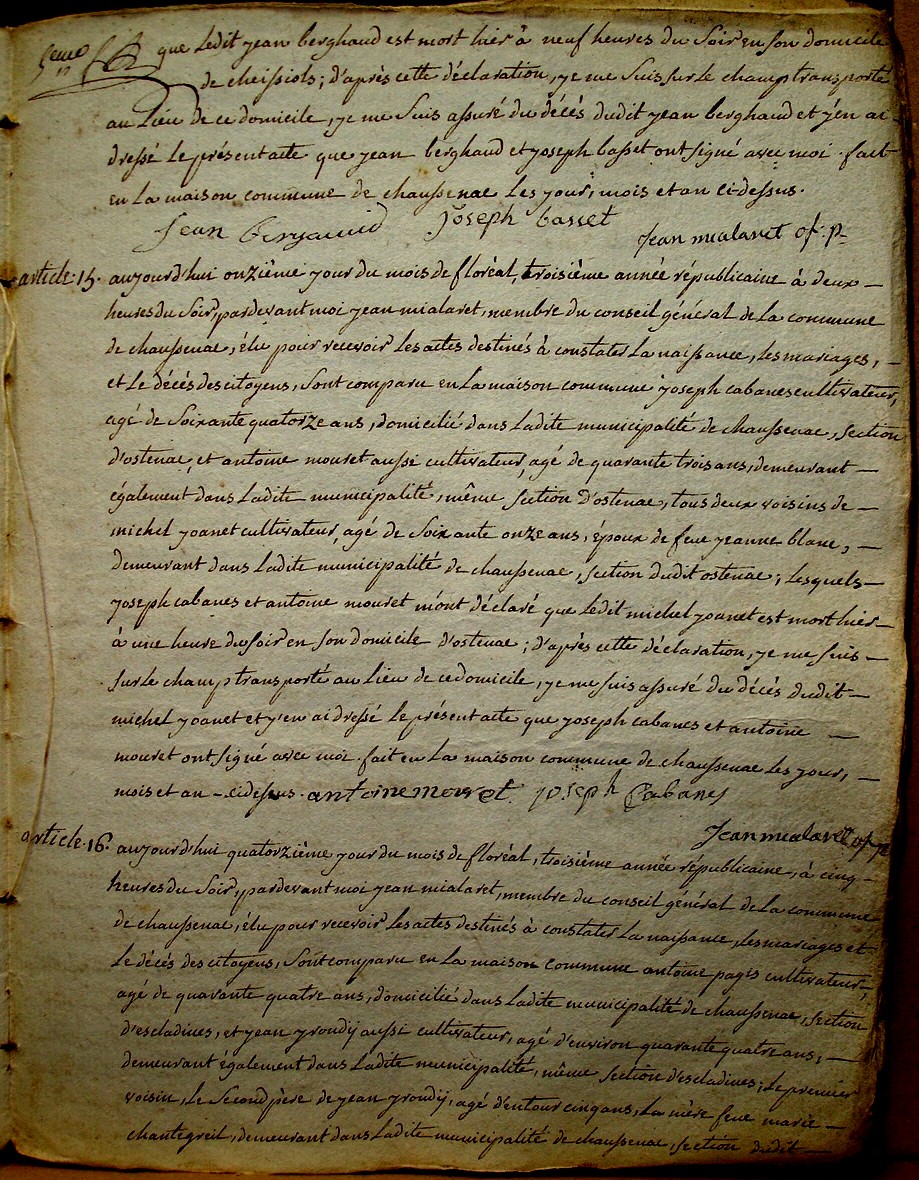 5eme
que ledit jean berghaud est mort hier à neuf heures du Soir en son domicile
de cheissiols; d'après cette déclaration, je me Suis sur le champ transporté
au Lieu de ce domicile, je me Suis assuré du décès dudit jean berghaud et j'en ai
dressé Le présent acte que jean berghaud et joseph basset ont signé avec moi. fait
en La maison commune de chaussenac Les jour, mois et an ci-dessus.
jean bergaud joseph basset
jean mialaret of. p.
article 15. aujourd'hui onzième jour du mois de floréal, troisième année républicaine à deux
heures du Soir, pardevant moi jean mialaret, membre du conseil général de La commune
de chaussenac, élu pour recevoir Les actes destinés à constater La naissance, Les mariages,
et Le décès des citoyens, Sont comparu en La maison commune joseph cabanes cultivateur,
agé de Soixante quatorze ans, domicilié dans Ladite municipalité de chaussenac, section
d'ostenac, et antoine mouret aussi cultivateur, agé de quarante trois ans, demeurant
également dans Ladite municipalité, même section d'ostenac, tous deux voisins de
michel joanet cultivateur, agé de Soixante onze ans, époux de feue jeanne blanc,
demeurant dans Ladite municipalité de chaussenac, section dudit ostenac; Lesquels
joseph cabanes et antoine mouret m'ont déclaré que Ledit michel joanet est mort hier
à une heure du soir en son domicile d'ostenac; d'après cette déclaration, je me suis
sur le champ transporté au Lieu de ce domicile, je me suis assuré du décès dudit
michel joanet et j'en ai dressé Le présent acte que joseph cabanes et antoine
mouret ont signé avec moi. fait en La maison commune de chaussenac Les jour,
mois et an ci dessus. antoine mouret. joseph Cabanes
jean mialaret of. p.
article 16. aujourd'hui quatorzième jour du mois de floréal, troisième année républicaine, à cinq
heures du Soir, pardevant moi jean mialaret, membre du conseil général de La commune
de chaussenac, élu pour recevoir Les actes destinés à constater La naissance, Les mariages et
Le décès des citoyens, Sont comparu en La maison commune antoine pagis cultivateur,
agé de quarante quatre ans, domicilié dans Ladite municipalité de chaussenac, section
d'escladines, et jean proudij aussi cultivateur, agé d'environ quarante quatre ans,
demeurant également dans Ladite municipalité, même section d'escladines; Le premier
voisin, Le Second père de jean proudij, agé d'entour cinq ans, La mère feue marie
chantegreil, demeurant dans Ladite municipalité de chaussenac, section dudit